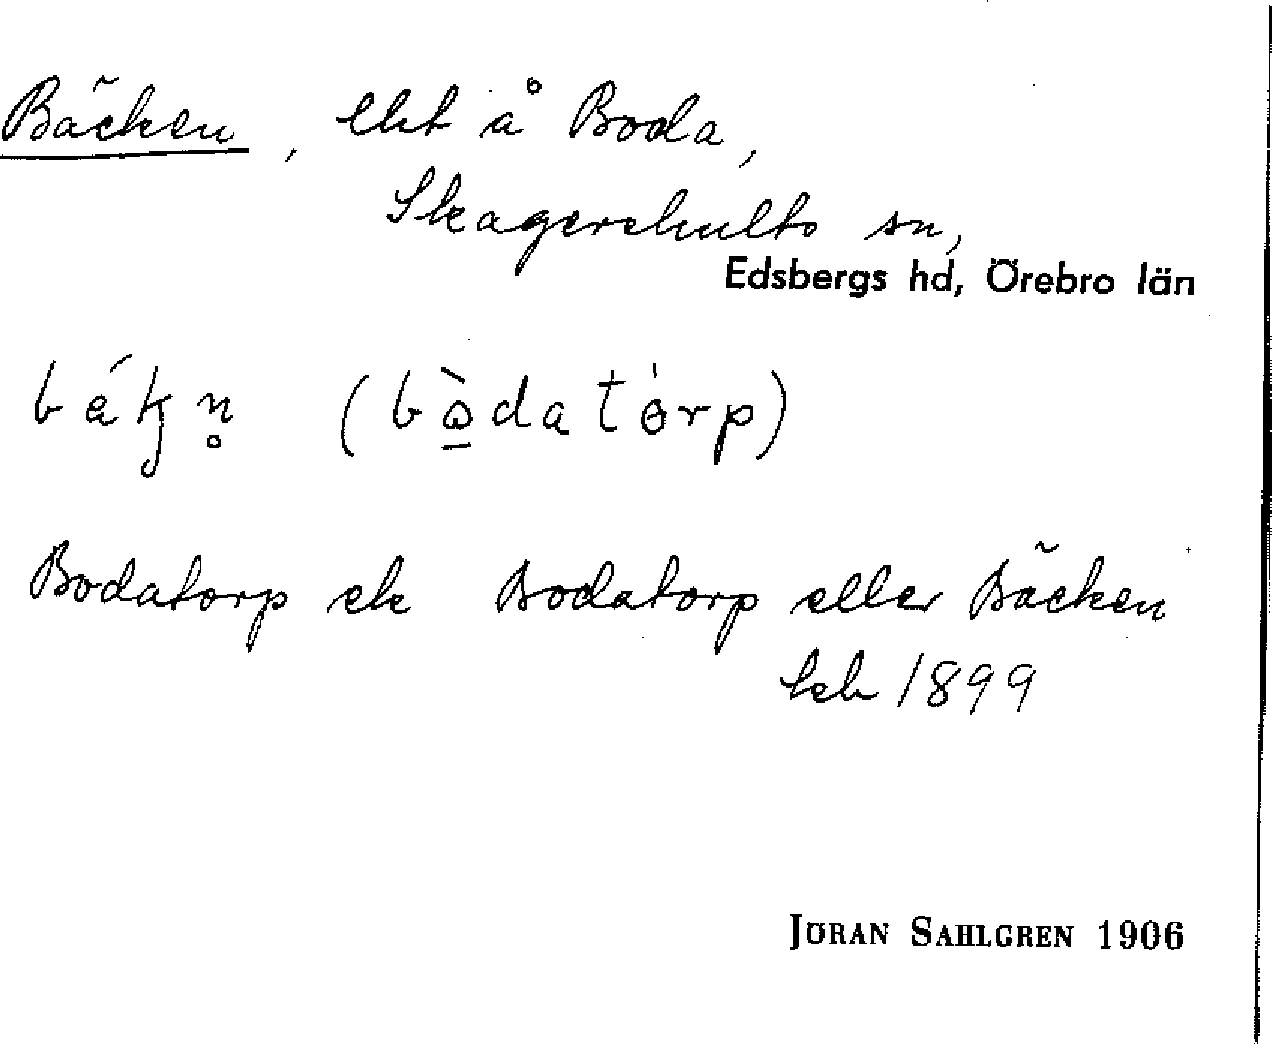 Bäcken, lht å Boda,
Skagershults sn,
Edsbergs hd, Örebro län
(bòdatórp)
Bodatorp ek Bodatorp eller Bäcken
1899
JÖRAN SAHLGREN 1906